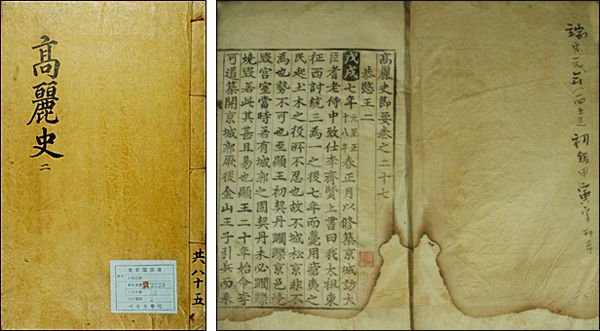 高麗史
二
共八十五
高麗史節要卷之二十七
恭愍王二
戊戌七年元至正十八年春正月以修築京城訪大
臣耆老侍中致仕李齊賢上書曰我太祖東
征西討統三爲一之後七年而薨用瘡夷之
民起土木之役所不忍也故不城松京非不
爲也勢不可也顯王初契丹躙京邑燒
毁宮室當時若有城郭之固契丹未必躙
燒毁若此其甚且易也顯王二十年始令李
可道築開京城郭厥後金山王子引兵而來
端宗元年(一四五三) 初鑄甲寅字